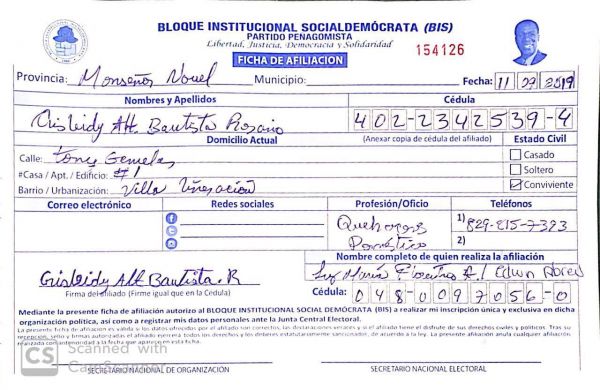 BLOQUE INSTITUCIONAL SOCIALDEMÓCRATA (BIS)
PARTIDO PEÑAGOMISTA
Libertad, Justicia, Democracia y Solidaridad
FICHA DE AFILIACION
154126
Provincia: Monseñor Nouel Municipio: Fecha: 11 2019
Nombres y Apellidos Cédula
Crisleidy Alt. Bautista Rosario 402-2342539-4
Domicilio Actual (Anexar copia de cédula del afiliado) Estado Civil
Calle: Torres Gemelas Casado
#Casa / Apt. / Edificio: #1 Soltero
Barrio / Urbanización: Villa Conviviente
Correo electrónico Redes sociales Profesión/Oficio Teléfonos
Quehaceres 1) 829-215-7393
Domésticos 2)
Nombre completo de quien realiza la afiliación
Crisleidy Alt Bautista.R Luz Maria / Edwin Abreu
Firma del afiliado (Firme igual que en la Cedula) Cédula: 048-0097056-0
Mediante la presente ficha de afiliación autorizo al BLOQUE INSTITUCIONAL SOCIAL DEMÓCRATA (BIS) a realizar mi inscripción única y exclusiva en dicha
organización política, así como a registrar mis datos personales ante la Junta Central Electoral.
La presente ficha de afiliación es valida si los datos ofrecidos por el afiliado son correctos, las declaraciones erradas y si el afiliado tiene el disfrute de sus derechos civiles y políticos. Tras su
recepción, sello y firmas autorizadas el afiliado ejercerá todos los derechos y los deberes estatutariamente sancionados, de acuerdo a la ley. La presente afiliación anula cualquier afiliación
realizada con anterioridad a la fecha que aparece en esta ficha.
CS Scanned with
CamScanner
SECRETARIO NACIONAL DE ORGANIZACIÓN SECRETARIO NACIONAL ELECTORAL